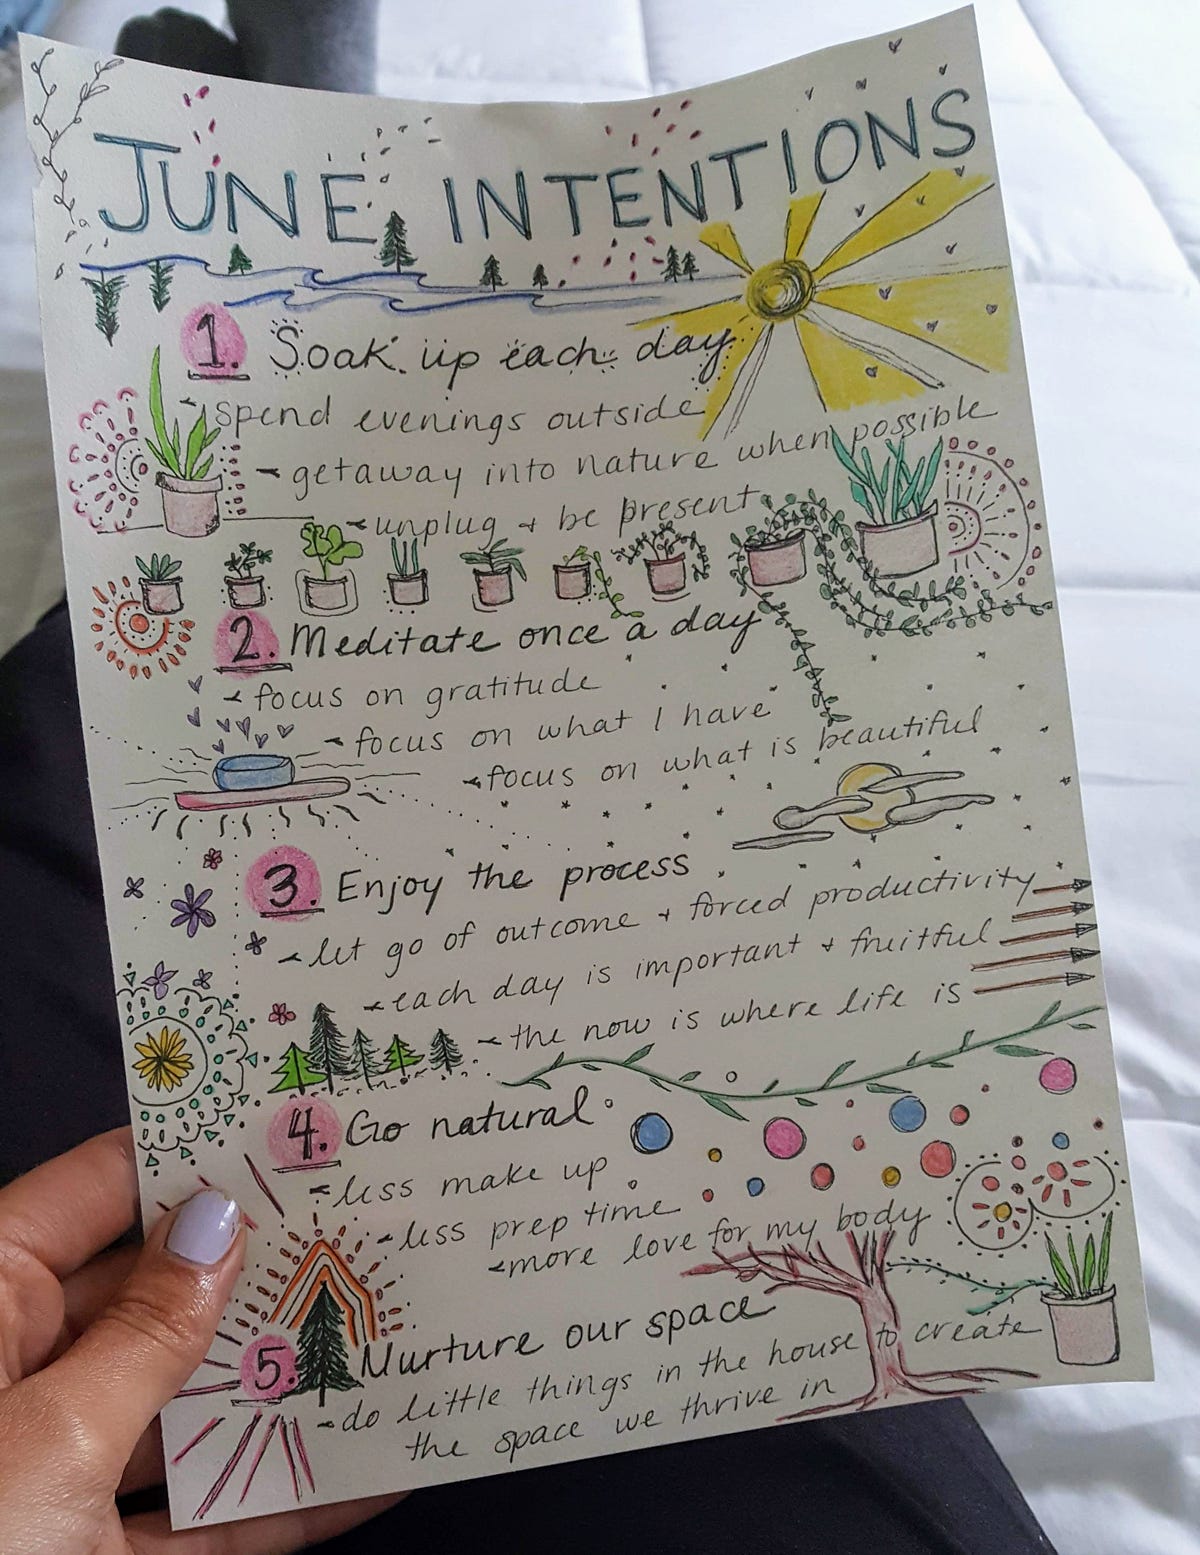 JUNE INTENTIONS
1. Soak up each day
- spend evenings outside
- getaway into nature when possible
- unplug + be present
2. Meditate once a day
- focus on gratitude
- focus on what I have
- focus on what is beautiful
3. Enjoy the process
- let go of outcome + forced productivity
- each day is important + fruitful
- the now is where life is
4. Go natural
- less make up
- less prep time
- more love for my body
5. Nurture our space
- do little things in the house to create
the space we thrive in